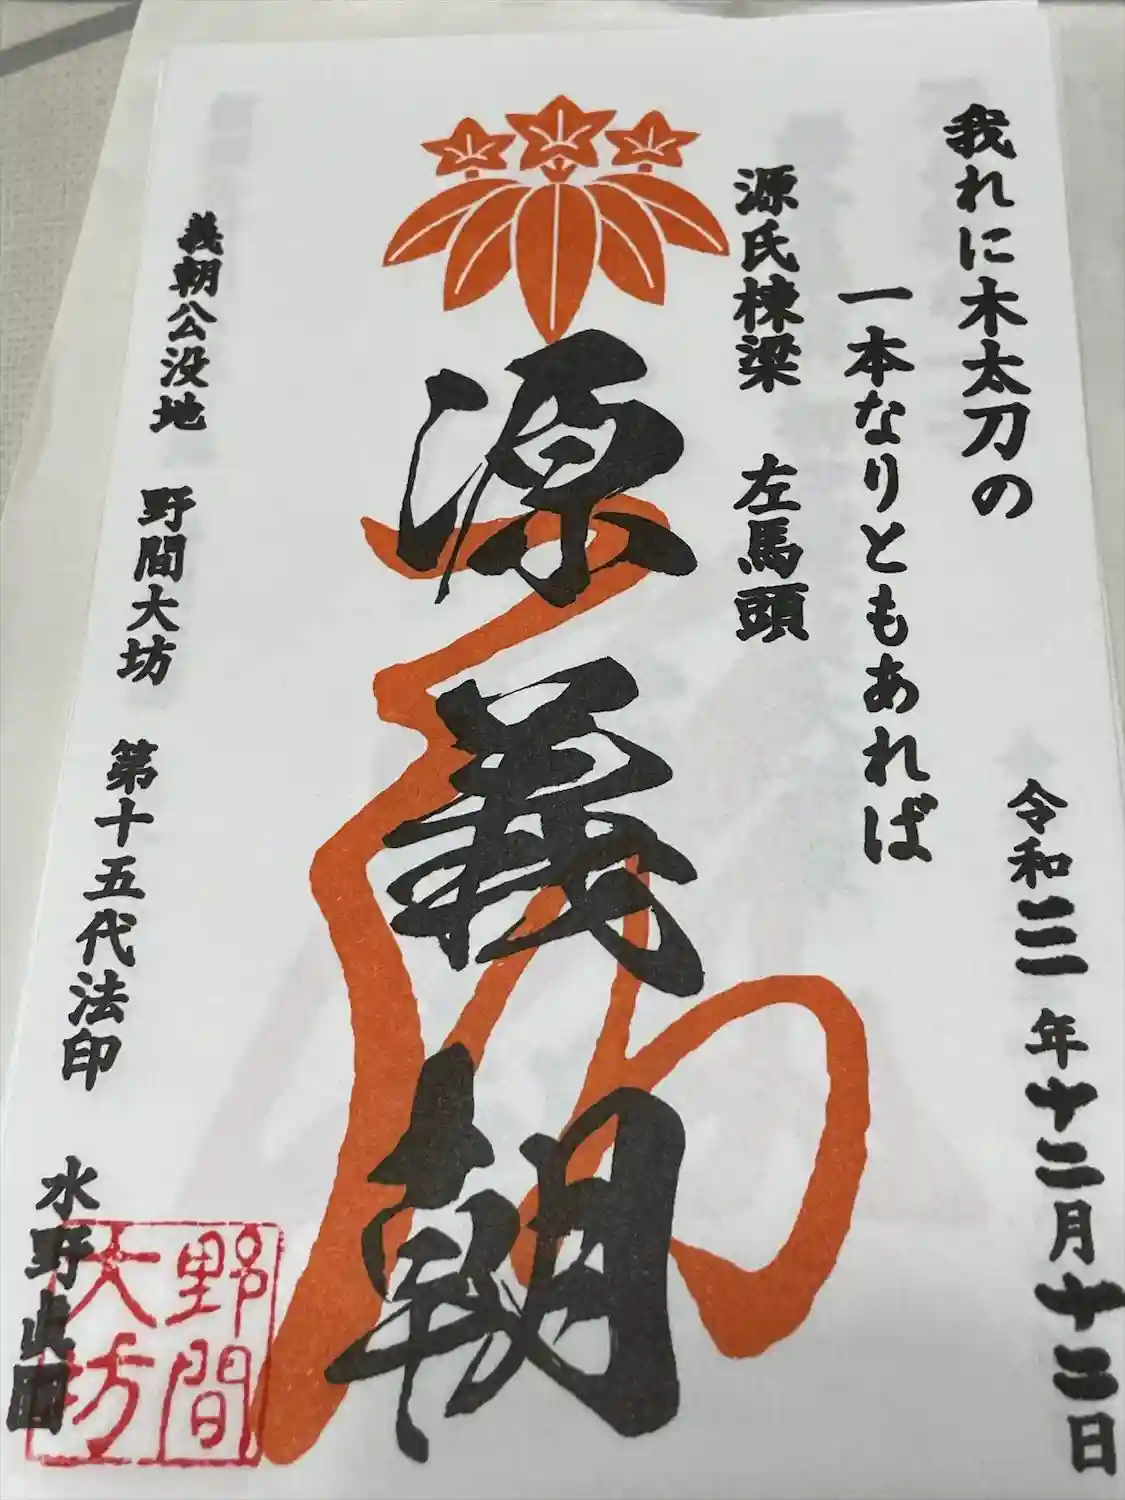 我れに木太刀の
一本なりともあれば
令和三年十二月十二日
源氏棟梁 左馬頭
源義朝
義朝公没地 野間大坊 第十五代法印 水野真圓
野間
大坊